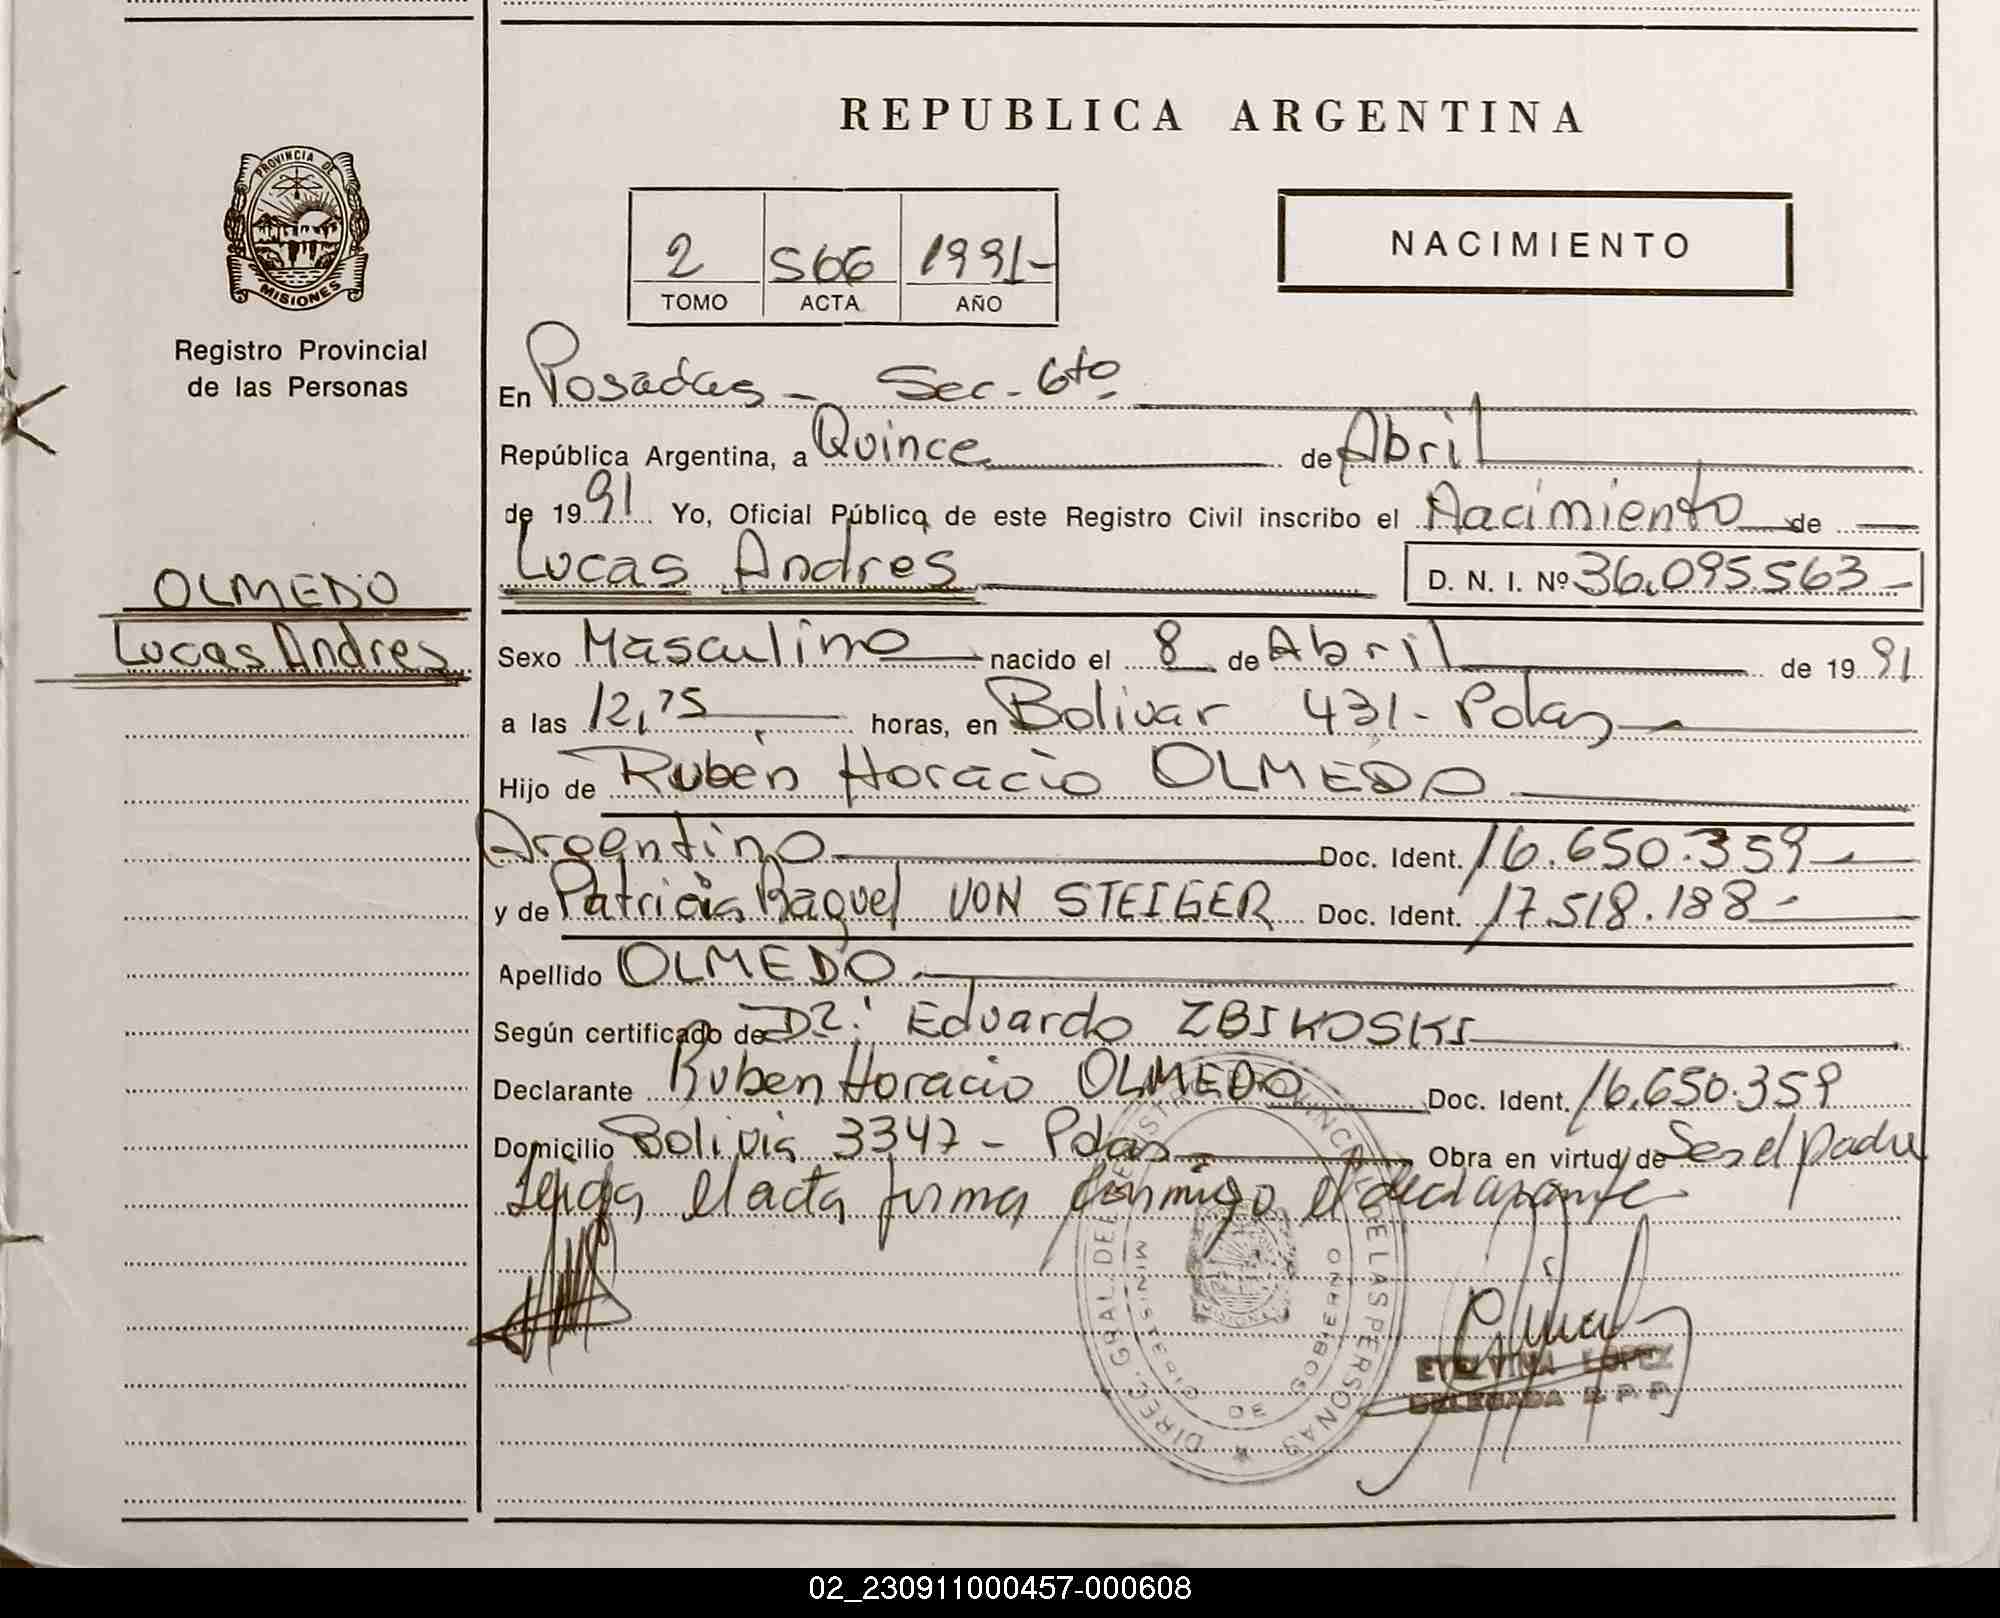 REPUBLICA ARGENTINA
PROVINCIA DE
MISIONES
Registro Provincial
de las Personas
2 566 1991-
TOMO ACTA AÑO
NACIMIENTO
En Posadas - Sec. 6to
República Argentina, a Quince de Abril
de 1991 Yo, Oficial Público de este Registro Civil inscribo el Nacimiento de
Lucas Andrés D. N. I. Nº 36.095.563-
OLMEDO
Lucas Andres
Sexo Masculino nacido el 8 de Abril de 1991
a las horas, en Bolivar 431 - Pdas
Hijo de Rubén Horacio OLMEDO
Argentino Doc. Ident. 16.650.359
y de Patricia Raquel VON STEIGER Doc. Ident. 17.518.188-
Apellido OLMEDO
Según certificado de Dr. Eduardo ZBIKOSKI
Declarante Ruben Horacio OLMEDO Doc. Ident. 16.650.359
Domicilio Bolivia 3347 - Pdas Obra en virtud de Ser el padre
Leida el acta firma conmigo el declarante
DIREC. GRAL. DEL REGISTRO PROVINCIAL DE LAS PERSONAS
MINISTERIO DE GOBIERNO
LOPEZ
DELEGADA R.P.P.
02_230911000457-000608